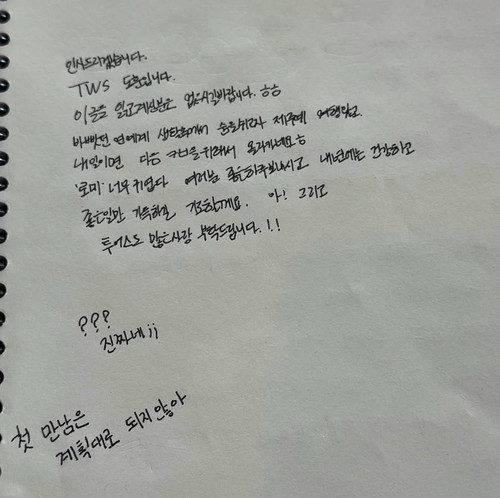 인사드리겠습니다.
TWS 도훈입니다.
이 글을 읽고계신분은 없으시길바랍니다. ㅎㅎ
바빴던 연예계 생활에서 숨을쉬고자 제주에 여행왔고
내일이면 다음 위해서 올라가네요ㅎ
'로미' 너무 귀엽다 여러분 좋은하루보내시고 내년에는 건강하고
좋은일만 가득하길 기도할게요. 아! 그리고
투어스도 많은사랑 부탁드립니다.!!
???
진짜네;;
첫 만남은
계획대로 되지않아